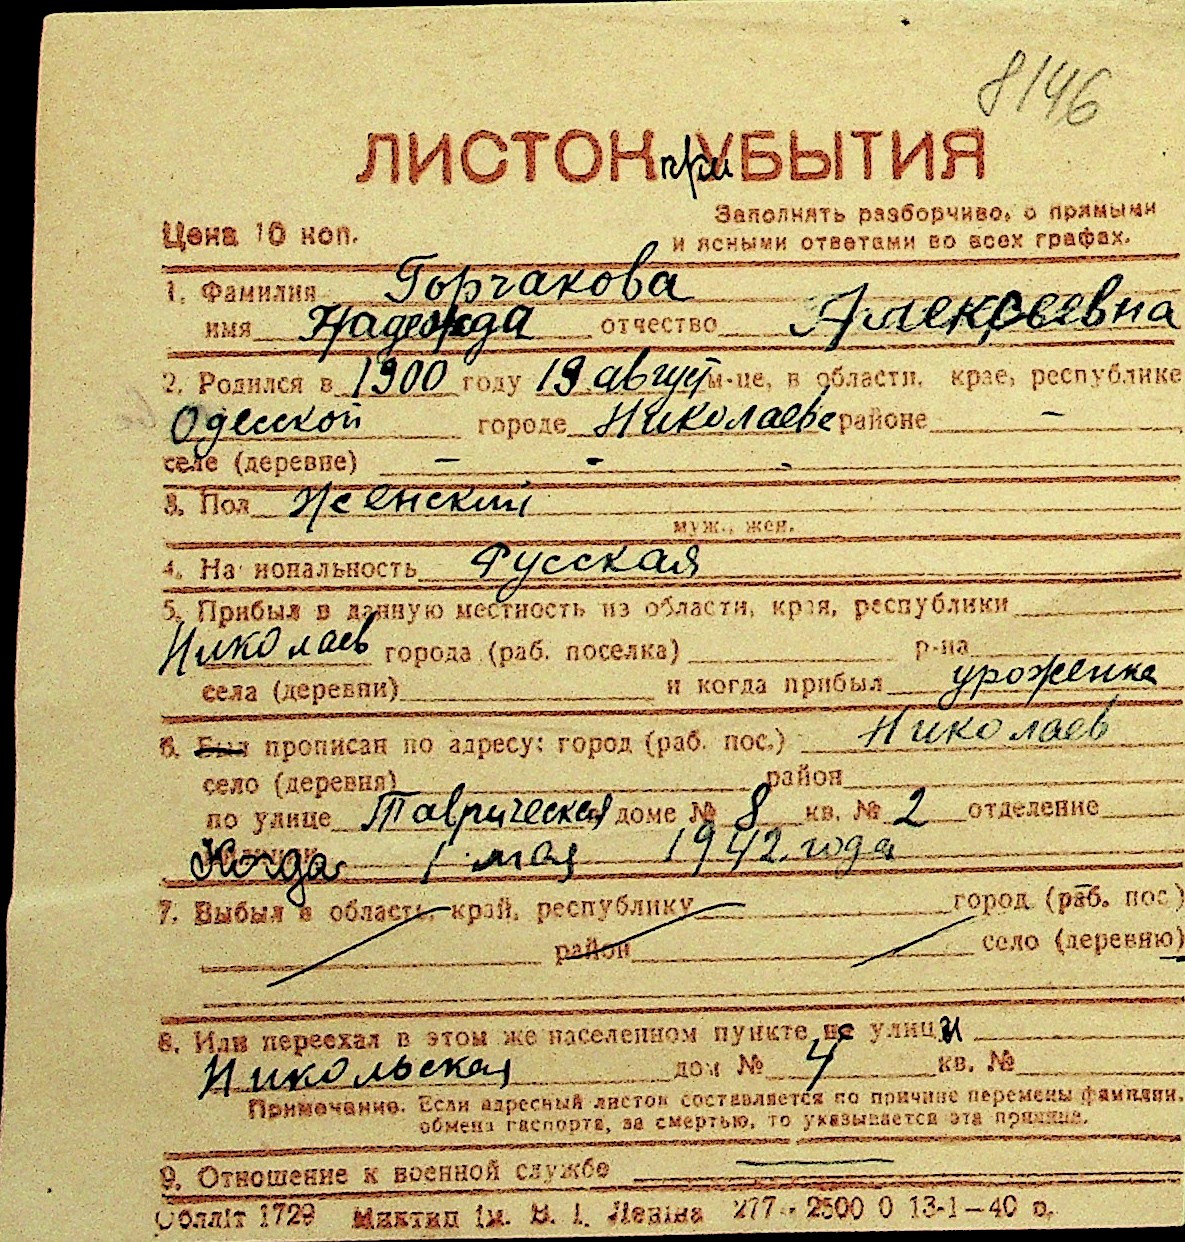 8146
ЛИСТОК при УБЫТИЯ
Цена 10 коп.
Заполнять разборчиво, с прямыми
и ясными ответами во всех графах.
1. Фамилия Горчакова
имя Надежда отчество Алексеевна
2. Родился в 1900 году 19 август м-це, в области, крае, республике
Одесской городе Николаеве районе –
селе (деревне) – - -
3. Пол Женский
муж., жен.
4. На иональность Русская
5. Прибыл в данную местность из области, края, республики
Николаев города (раб. поселка) р-на
села (деревни) и когда прибыл уроженка
6. Был прописан по адресу: город (раб. пос.) Николаев
село (деревня) район
по улице Таврическая доме № 8 кв. № 2 отделение
Когда 1 мая 1942 года
7. Выбыл в область, край, республику город (раб. пос.)
район село (деревню)
8. Или переехал в этом же населенном пункте с улицы
Никольская дом № 4 кв. №
Примечание. Если адресный листок составляется по причине перемены фамилии,
обмена паспорта, за смертью, то указывается эта причина.
9. Отношение к военной службе
Облліт 1729 Миктип ім. В. І. Леніна 277 - 2500 0 13-1-40 р.